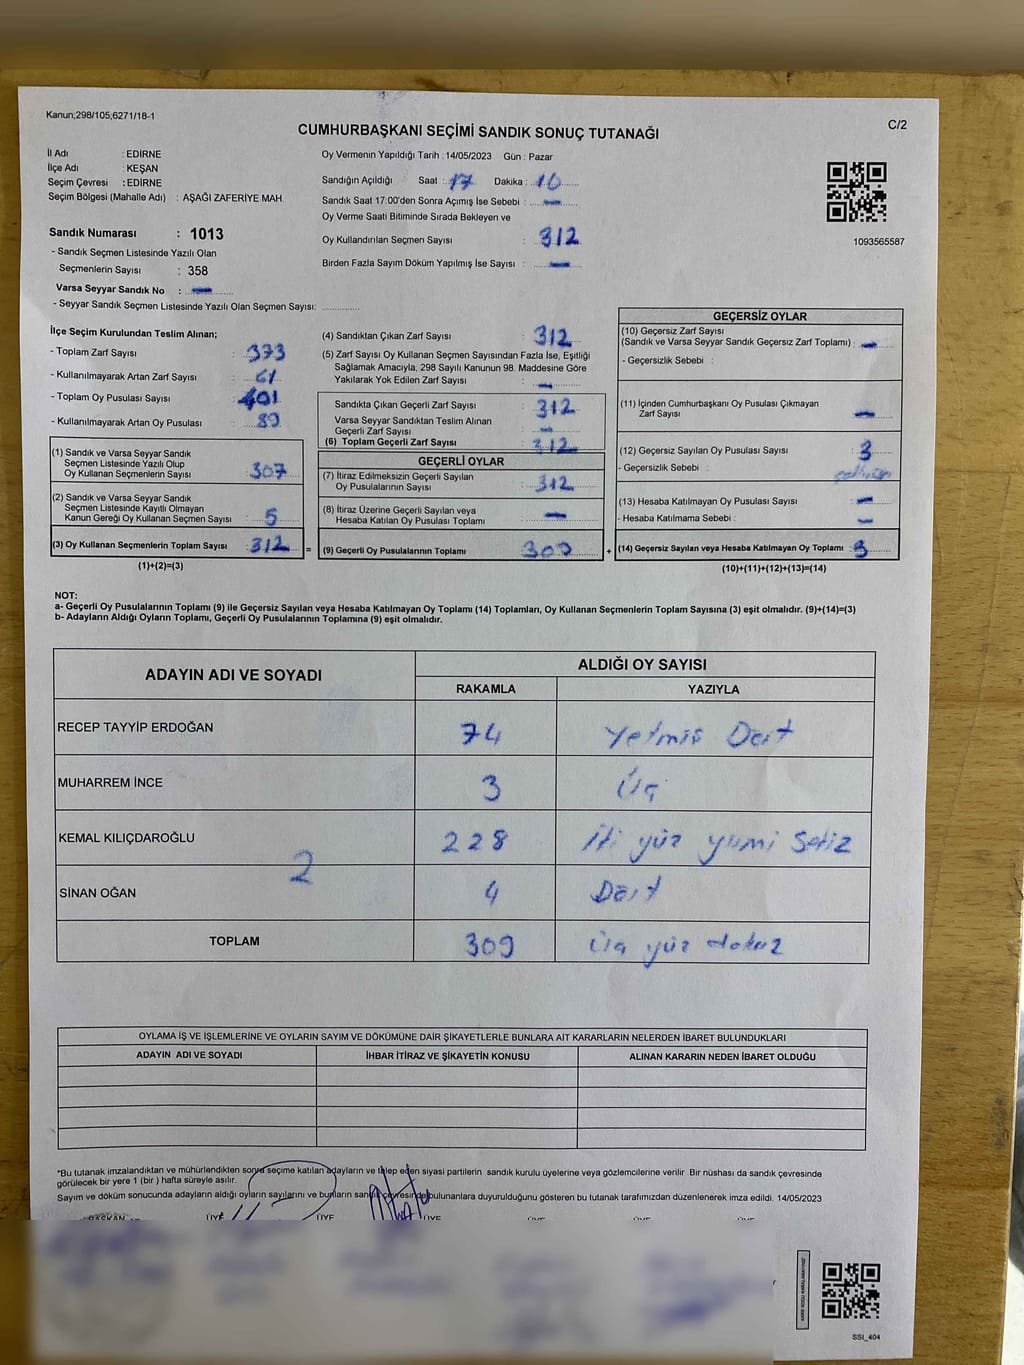 Kanun;298/105,6271/18-1
C/2
CUMHURBAŞKANI SEÇİMİ SANDIK SONUÇ TUTANAĞI
İl Adı : EDİRNE
İlçe Adı : KEŞAN
Seçim Çevresi : EDİRNE
Seçim Bölgesi (Mahalle Adı) : AŞAĞI ZAFERİYE MAH.
Sandık Numarası : 1013
- Sandık Seçmen Listesinde Yazılı Olan
Seçmenlerin Sayısı : 358
Varsa Seyyar Sandık No : —
- Seyyar Sandık Seçmen Listesinde Yazılı Olan Seçmen Sayısı: ..............
Oy Vermenin Yapıldığı Tarih : 14/05/2023 Gün : Pazar
Sandığın Açıldığı Saat : 17 Dakika : 10
Sandık Saat 17:00'den Sonra Açımış İse Sebebi : —
Oy Verme Saati Bitiminde Sırada Bekleyen ve
Oy Kullandırılan Seçmen Sayısı : 312
Birden Fazla Sayım Döküm Yapılmış İse Sayısı : —
1093565587
İlçe Seçim Kurulundan Teslim Alınan;
- Toplam Zarf Sayısı : 373
- Kullanılmayarak Artan Zarf Sayısı : 61
- Toplam Oy Pusulası Sayısı : 401
- Kullanılmayarak Artan Oy Pusulası : 89
(1) Sandık ve Varsa Seyyar Sandık
Seçmen Listesinde Yazılı Olup
Oy Kullanan Seçmenlerin Sayısı : 307
(2) Sandık ve Varsa Seyyar Sandık
Seçmen Listesinde Kayıtlı Olmayan
Kanun Gereği Oy Kullanan Seçmen Sayısı : 5
(3) Oy Kullanan Seçmenlerin Toplam Sayısı : 312 =
(1)+(2)=(3)
(4) Sandıktan Çıkan Zarf Sayısı : 312
(5) Zarf Sayısı Oy Kullanan Seçmen Sayısından Fazla İse, Eşitliği
Sağlamak Amacıyla, 298 Sayılı Kanunun 98. Maddesine Göre
Yakılarak Yok Edilen Zarf Sayısı : —
Sandıkta Çıkan Geçerli Zarf Sayısı : 312
Varsa Seyyar Sandıktan Teslim Alınan
Geçerli Zarf Sayısı : —
(6) Toplam Geçerli Zarf Sayısı : 312
GEÇERLİ OYLAR
(7) İtiraz Edilmeksizin Geçerli Sayılan
Oy Pusulalarının Sayısı : 312
(8) İtiraz Üzerine Geçerli Sayılan veya
Hesaba Katılan Oy Pusulası Toplamı : —
(9) Geçerli Oy Pusulalarının Toplamı : 309 +
GEÇERSİZ OYLAR
(10) Geçersiz Zarf Sayısı
(Sandık ve Varsa Seyyar Sandık Geçersiz Zarf Toplamı) : —
- Geçersizlik Sebebi :
(11) İçinden Cumhurbaşkanı Oy Pusulası Çıkmayan
Zarf Sayısı : —
(12) Geçersiz Sayılan Oy Pusulası Sayısı : 3
- Geçersizlik Sebebi :
(13) Hesaba Katılmayan Oy Pusulası Sayısı : —
- Hesaba Katılmama Sebebi : —
(14) Geçersiz Sayılan veya Hesaba Katılmayan Oy Toplamı : 3
(10)+(11)+(12)+(13)=(14)
NOT:
a- Geçerli Oy Pusulalarının Toplamı (9) ile Geçersiz Sayılan veya Hesaba Katılmayan Oy Toplamı (14) Toplamları, Oy Kullanan Seçmenlerin Toplam Sayısına (3) eşit olmalıdır. (9)+(14)=(3)
b- Adayların Aldığı Oyların Toplamı, Geçerli Oy Pusulalarının Toplamına (9) eşit olmalıdır.
ADAYIN ADI VE SOYADI
ALDIĞI OY SAYISI
RAKAMLA YAZIYLA
RECEP TAYYİP ERDOĞAN 74 Yetmiş Dört
MUHARREM İNCE 3 Üç
KEMAL KILIÇDAROĞLU 228 İki yüz yirmi Sekiz
2
SİNAN OĞAN 4 Dört
TOPLAM 309 Üç yüz dokuz
OYLAMA İŞ VE İŞLEMLERİNE VE OYLARIN SAYIM VE DÖKÜMÜNE DAİR ŞİKAYETLERLE BUNLARA AİT KARARLARIN NELERDEN İBARET BULUNDUKLARI
ADAYIN ADI VE SOYADI İHBAR İTİRAZ VE ŞİKAYETİN KONUSU ALINAN KARARIN NEDEN İBARET OLDUĞU
*Bu tutanak imzalandıktan ve mühürlendikten sonra seçime katılan adayların ve talep eden siyasi partilerin sandık kurulu üyelerine veya gözlemcilerine verilir. Bir nüshası da sandık çevresinde
görülecek bir yere 1 (bir) hafta süreyle asılır.
Sayım ve döküm sonucunda adayların aldığı oyların sayılarını ve bunların sandık çevresinde bulunanlara duyurulduğunu gösteren bu tutanak tarafımızdan düzenlenerek imza edildi. 14/05/2023
BAŞKAN ÜYE ÜYE ÜYE ÜYE ÜYE ÜYE
SSI_404